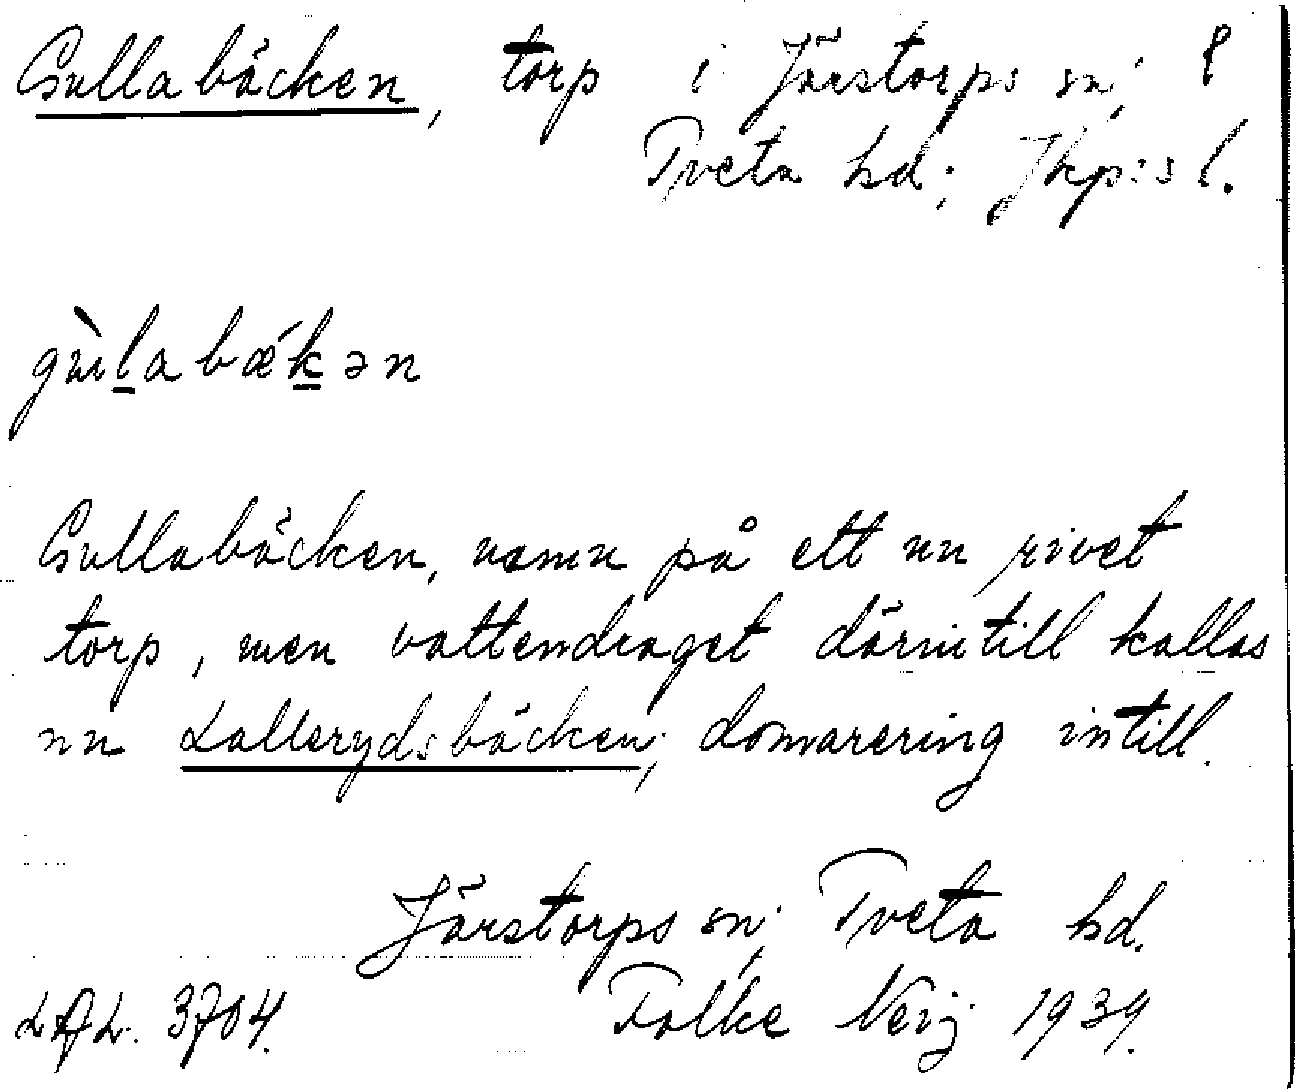 Gullabäcken, torp i Järstorps sn;
Tveta hd; Jkp:s l.
gùlabǽkən
Gullabäcken, namn på ett nu rivet
torp, men vattendraget därintill kallas
nu Lallerydsbäcken; domarering intill.
Järstorps sn; Tveta hd.
LAL. 3704. Folke Neij 1939.